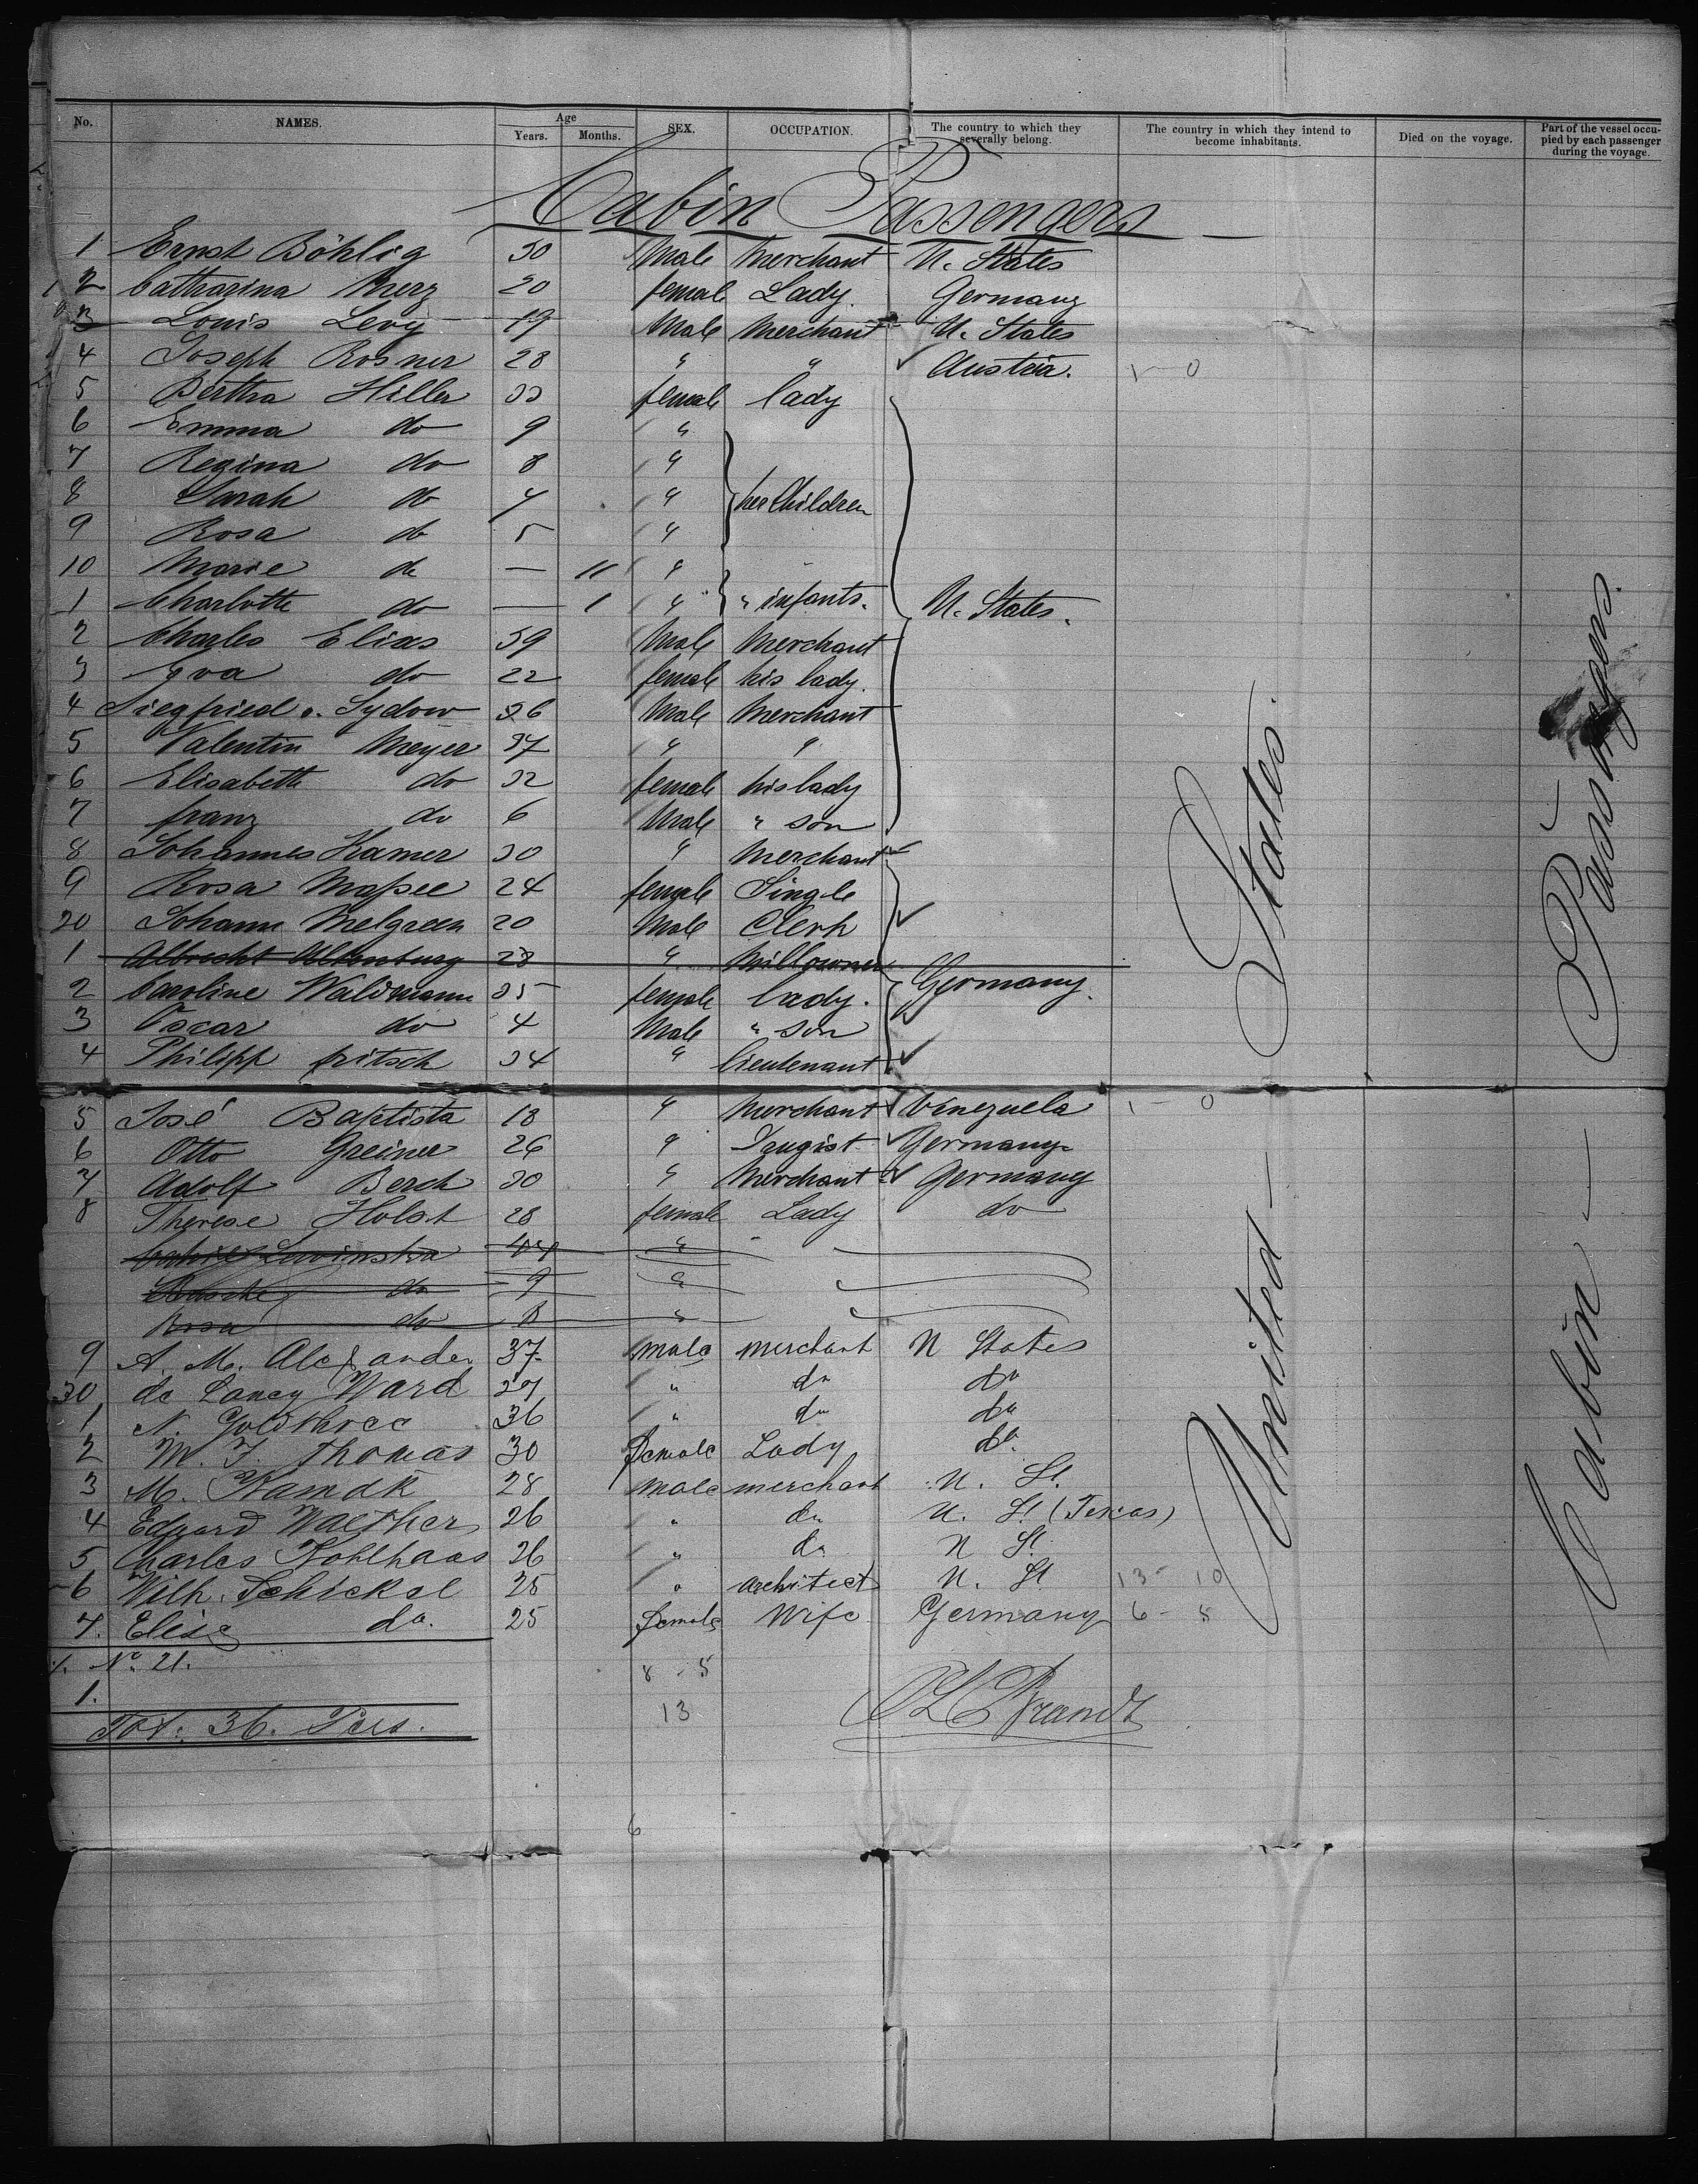 No. NAMES. Age Years. Months. SEX. OCCUPATION. The country to which they severally belong. The country in which they intend to become inhabitants. Died on the voyage. Part of the vessel occupied by each passenger during the voyage.
Cabin Passengers
1 Ernst Böhlig 30 Male Merchant U. States
2 Catharina Merz 20 femal Lady. Germany
3 Louis Levy 19 Male Merchant U. States
4 Joseph Rosner 28 " " Austria. 1 - 0
5 Bertha Hiller 33 female lady
6 Emma do 9 "
7 Regina do 8 "
8 Sarah do 7 " her Children
9 Rosa do 5 "
10 Marie do — 11 "
1 Charlotte do — 1 " " infants. U. States.
2 Charles Elias 39 Male Merchant
3 Eva do 22 female his lady.
4 Siegfried v. Sydow 36 Male Merchant
5 Valentin Meyer 37 " "
6 Elisabeth do 32 female his lady
7 franz do 6 Male " son
8 Johannes Kamer 30 " Merchant
9 Rosa Massee 24 female Single
20 Johann Melgreen 20 Male Clerk
1 Albrecht Altenburg 28 " Millowner
2 Caroline Waldmann 35 female lady. Germany.
3 Oscar do 4 Male " son
4 Philipp fritsch 34 " lieutenant
5 José Baptista 18 " Merchant Venezuela 1 - 0
6 Otto Greiner 26 " Drugist Germany
7 Adolf Berch 30 " Merchant Germany
8 Therese Holst 28 female Lady do
Lewinstra 44 "
do 9 "
Rosa do 8 "
9 A. M. Alexander 37 male merchant U States
30 de Lancy Ward 27 " do do
1 N. Goldthree 36 " do do
2 M. J. Thomas 30 female Lady do.
3 M. Kamak 28 male merchant U. St.
4 Edgard Walther 26 " do U. St (Texas)
5 Charles Kohlhaas 26 " do U St.
6 Wilh. Schickel 28 " architect U. St 13 - 10
7. Elise do. 25 female Wife Germany 6 - 8
%. No. 21. 8 - 5
1. 13
Tot. 36. Pers. Brandt
6
United States.
Cabin Passengers.